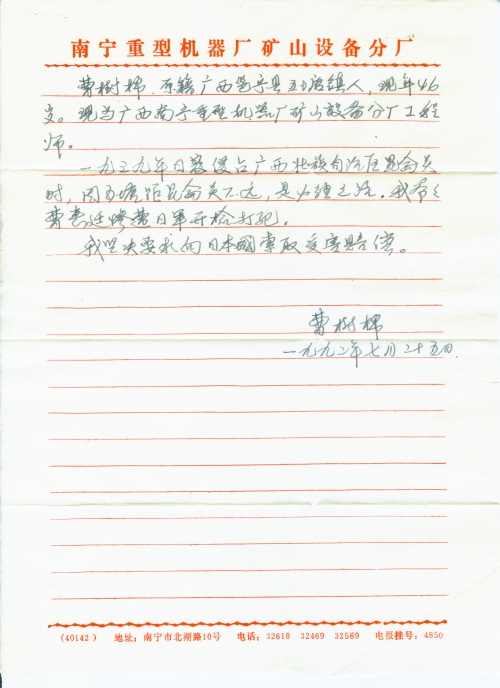 南宁重型机器厂矿山设备分厂
曹樹棉，原籍广西邕宁县五塘镇人，现年46
岁。现为广西南宁重型机器厂矿山设备分厂工程
师。
一九三九年日寇侵占广西壮族自治区昆仑关
时，因五塘距昆仑关不远，是必经之路。我
曹廷 日军开枪打死。
我坚决要求向日本國索取受害赔偿。
曹樹棉
一九九二年七月二十五日.
(40142) 地址：南宁市北湖路10号 电话：32618 32469 32569 电报挂号：4850